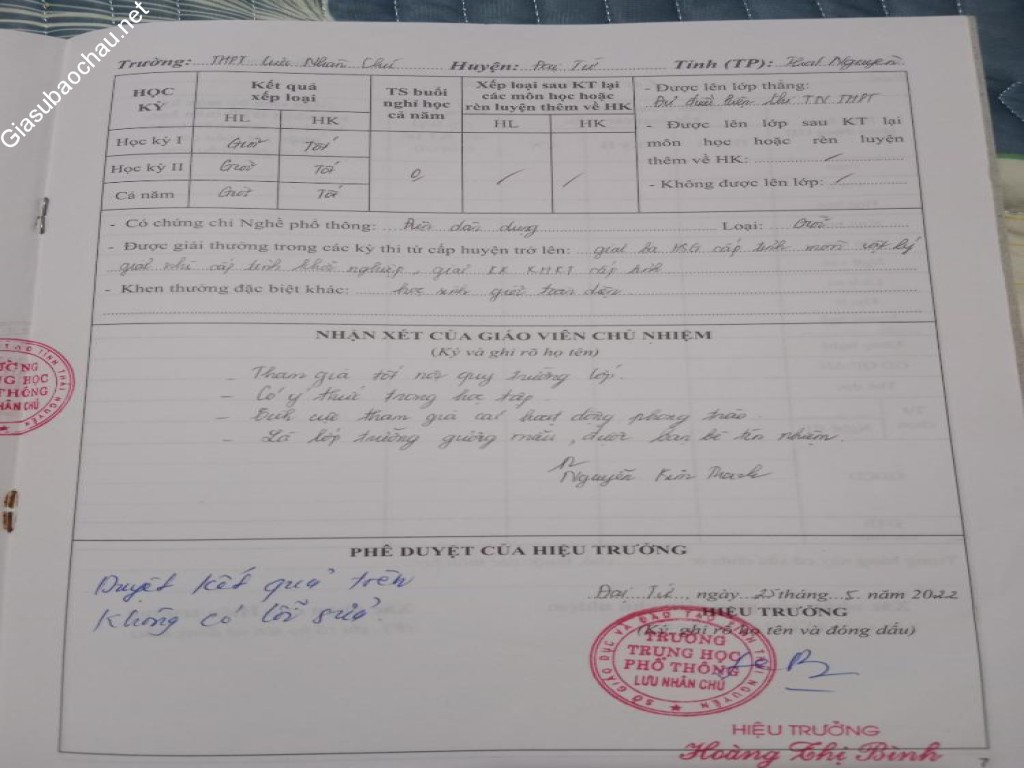 Giasubaochau.net
Trường: THPT Lưu Nhân Chú Huyện: Đại Từ Tỉnh (TP): Thái Nguyên
HỌC KỲ
Kết quả xếp loại
HL HK
TS buổi nghỉ học cả năm
Xếp loại sau KT lại các môn học hoặc rèn luyện thêm về HK
HL HK
Học kỳ I Giỏi Tốt
Học kỳ II Giỏi Tốt
Cả năm Giỏi Tốt
0 / /
- Được lên lớp thẳng:
Đủ điều kiện thi TN THPT
- Được lên lớp sau KT lại
môn học hoặc rèn luyện
thêm về HK: /
- Không được lên lớp: /
- Có chứng chỉ Nghề phổ thông: Điện dân dụng Loại: Giỏi
- Được giải thưởng trong các kỳ thi từ cấp huyện trở lên: giải ba HSG cấp tỉnh môn vật lý
giải nhì cấp tỉnh khởi nghiệp, giải KK KHKT cấp tỉnh
- Khen thưởng đặc biệt khác: học sinh giỏi toàn diện
NHẬN XÉT CỦA GIÁO VIÊN CHỦ NHIỆM
(Ký và ghi rõ họ tên)
- Tham gia tốt nội quy trường lớp.
- Có ý thức trong học tập
- Tích cực tham gia các hoạt động phong trào
- Là lớp trưởng gương mẫu, được bạn bè tín nhiệm.
Nguyễn Kim Thanh
PHÊ DUYỆT CỦA HIỆU TRƯỞNG
Duyệt kết quả trên
Không có lỗi sửa.
Đại Từ, ngày 25 tháng 5 năm 2022
HIỆU TRƯỞNG
(Ký, ghi rõ họ tên và đóng dấu)
SỞ GIÁO DỤC VÀ ĐÀO TẠO TỈNH THÁI NGUYÊN
TRƯỜNG
TRUNG HỌC
PHỔ THÔNG
LƯU NHÂN CHÚ
HIỆU TRƯỞNG
Hoàng Thị Bình
7